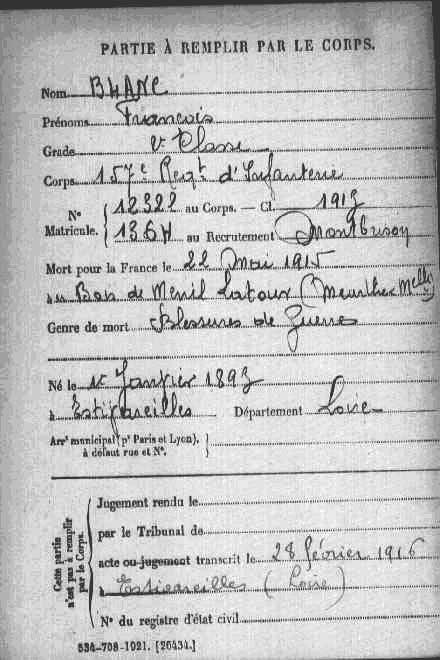 PARTIE À REMPLIR PAR LE CORPS.
Nom BLANC
Prénoms François
Grade 2e Classe
Corps 157e Regt d'Infanterie
N° Matricule. 12322 au Corps. — Cl. 1913
1364 au Recrutement Montbrison
Mort pour la France le 22 Mai 1915
au Bois de Menil Latoux (Meurthe Mlle)
Genre de mort Blessures de Guerre
Né le 1er Janvier 1893
à Estivareilles Département Loire
Arrt municipal (pr Paris et Lyon),
à défaut rue et N°.
Cette partie n'est pas à remplir par le Corps.
Jugement rendu le
par le Tribunal de
acte ou jugement transcrit le 28 février 1916
à Estivareilles (Loire)
N° du registre d'état civil
534-708-1921. [26434.]